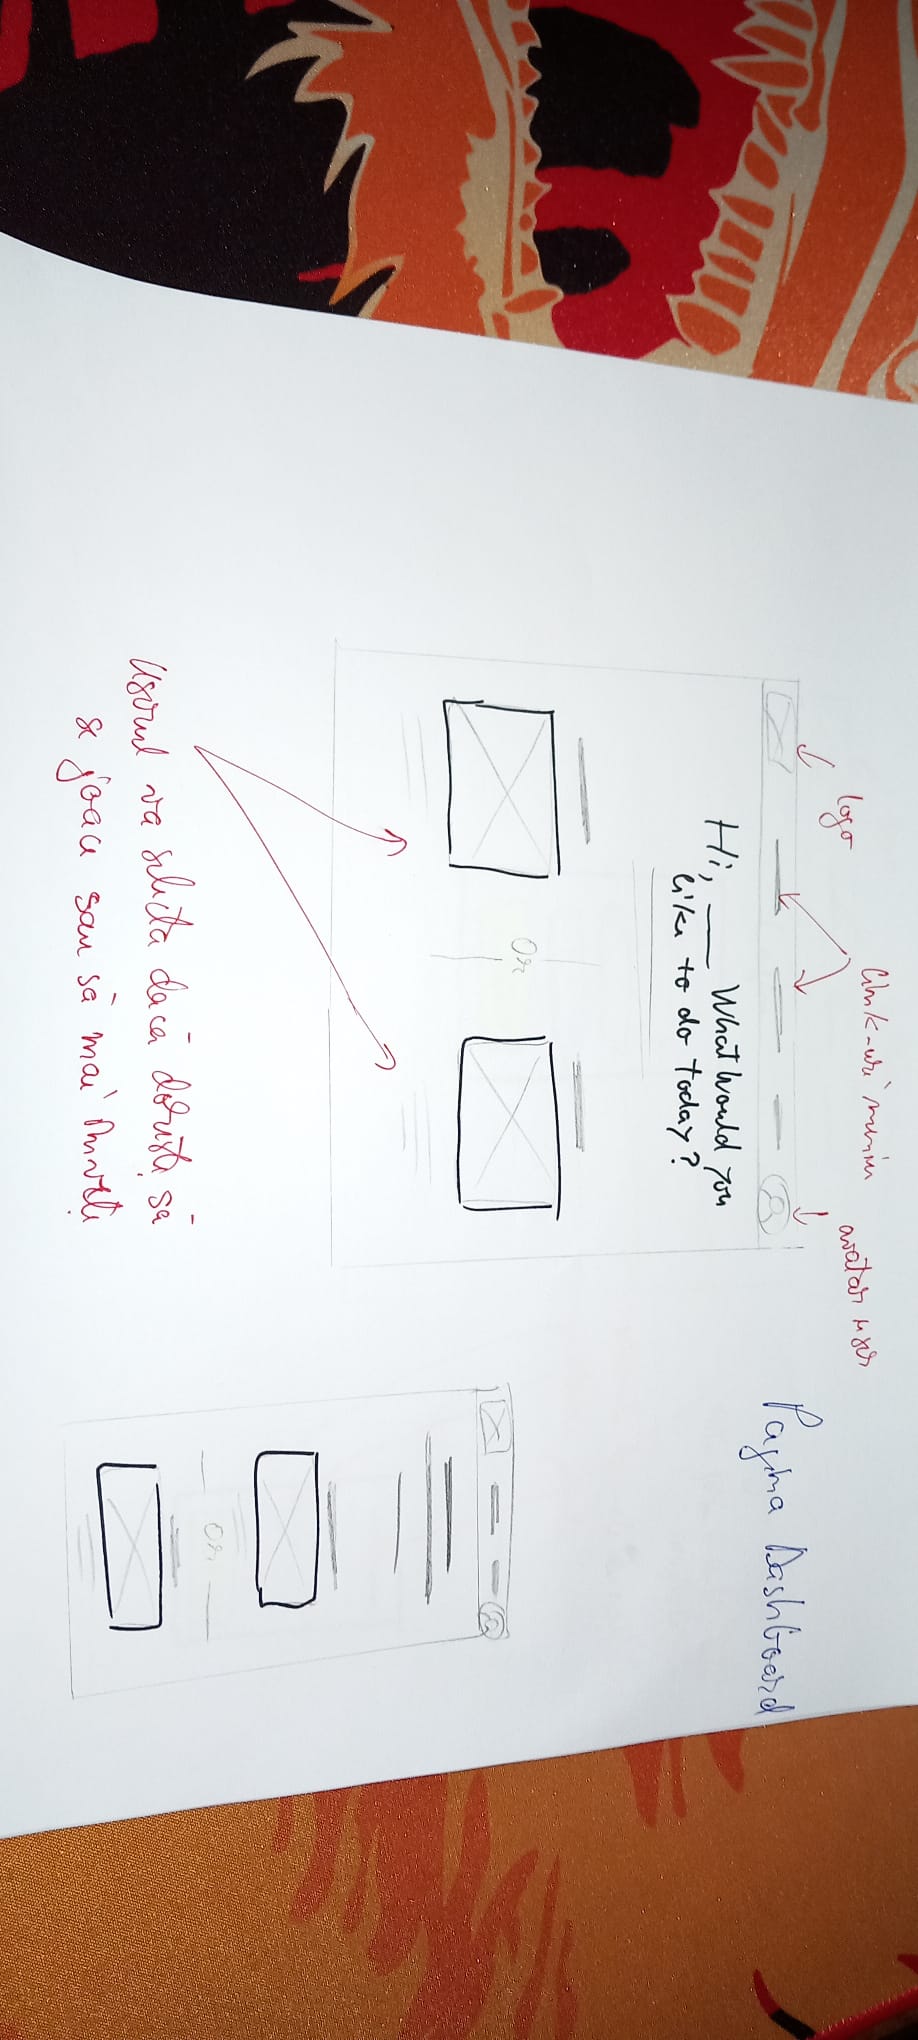 Pagina Dashboard
logo
link-uri meniu
avatar user
Hi, ___ What would you
like to do today?
Or
Userul va selecta dacă dorește să
se joace sau să mai învețe
Or